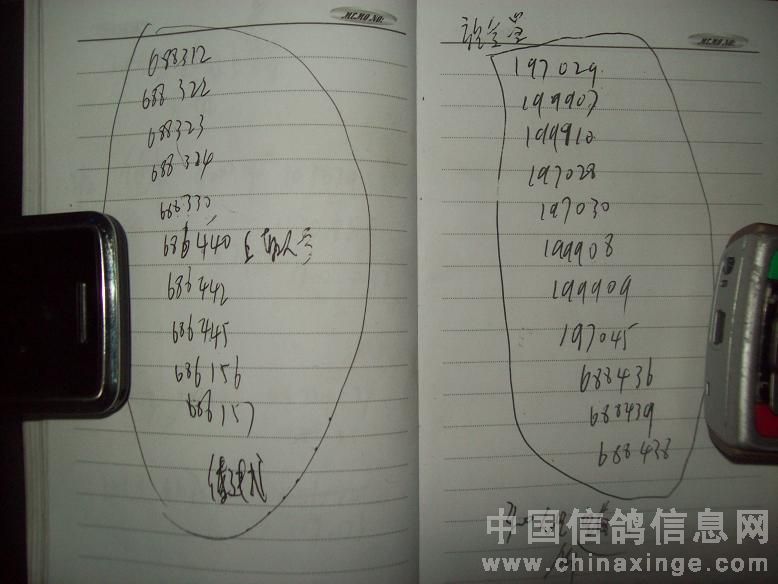 MEMO NO:
688312
688322
688323
688324
688330
686440
686442
686445
686156
686157
MEMO NO:
197029
199907
199910
197028
197030
199908
199909
197045
688436
688439
688438
中国信鸽信息网
www.chinaxinge.com